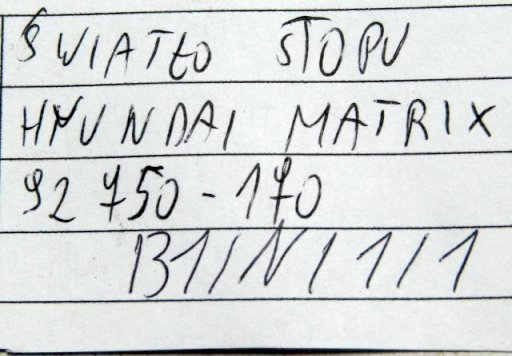 ŚWIATŁO STOPU
HYUNDAI MATRIX
92 750-170
B1/N/1/1